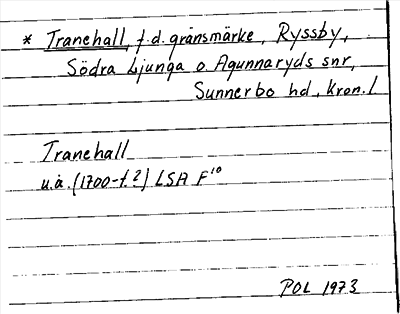 * Tranehall, f.d. gränsmärke, Ryssby,
Södra Ljunga o Agunnaryds snr,
Sunnerbo hd, Kron. l
Tranehall
u.å. (1700-t.?) LSA F¹⁰
POL 1973